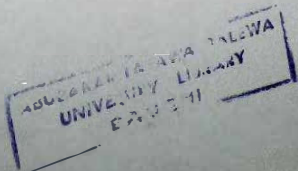 ABUBAKAR TAFAWA BALEWA
UNIVERSITY LIBRARY
BAUCHI